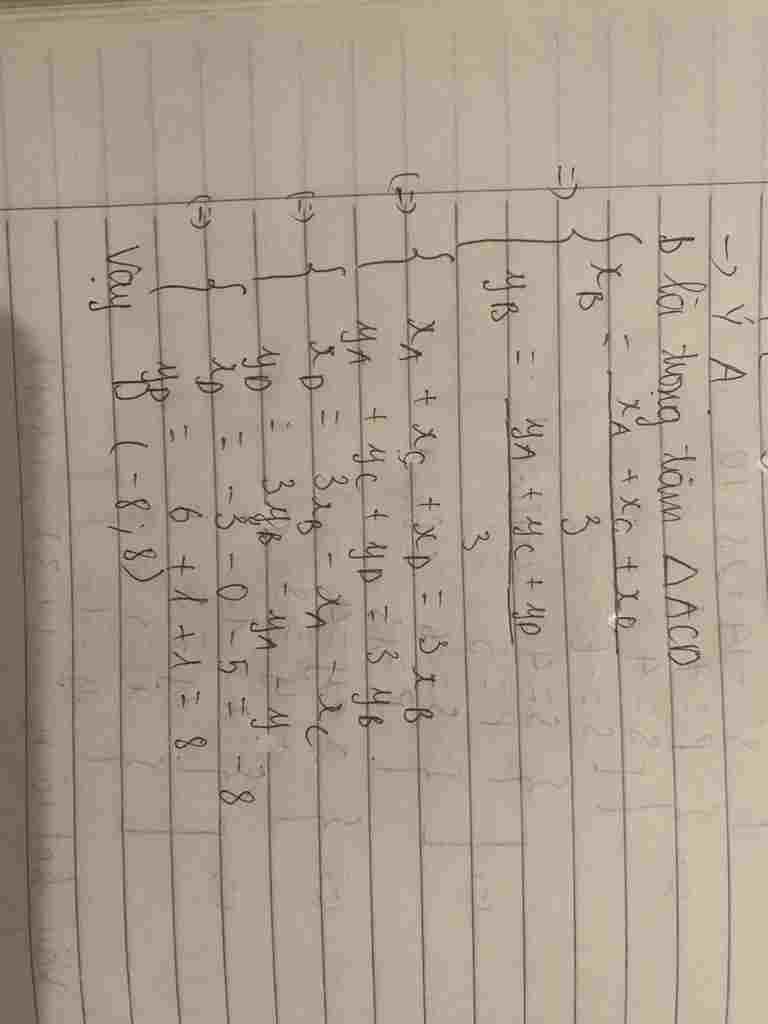 → Ý A
b là trọng tâm △ACD
=> { x_B = (x_A + x_C + x_D) / 3
y_B = (y_A + y_C + y_D) / 3
(=) { x_A + x_C + x_D = 3x_B
y_A + y_C + y_D = 3y_B
(=) { x_D = 3x_B - x_A - x_C
y_D = 3y_B - y_A - y
(=) { x_D = -3 - 0 - 5 = -8
y_D = 6 + 1 + 1 = 8
Vậy D (-8; 8)